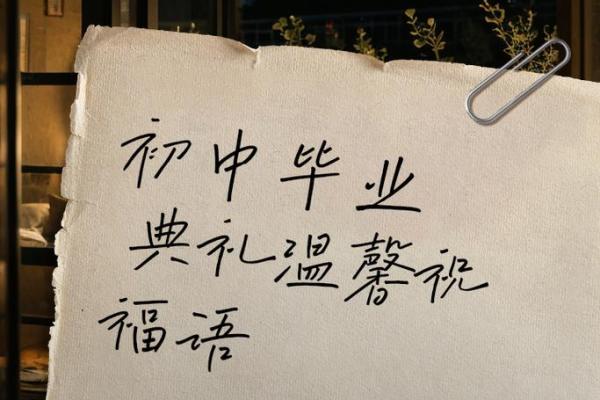 初中毕业
典礼温馨祝
福语